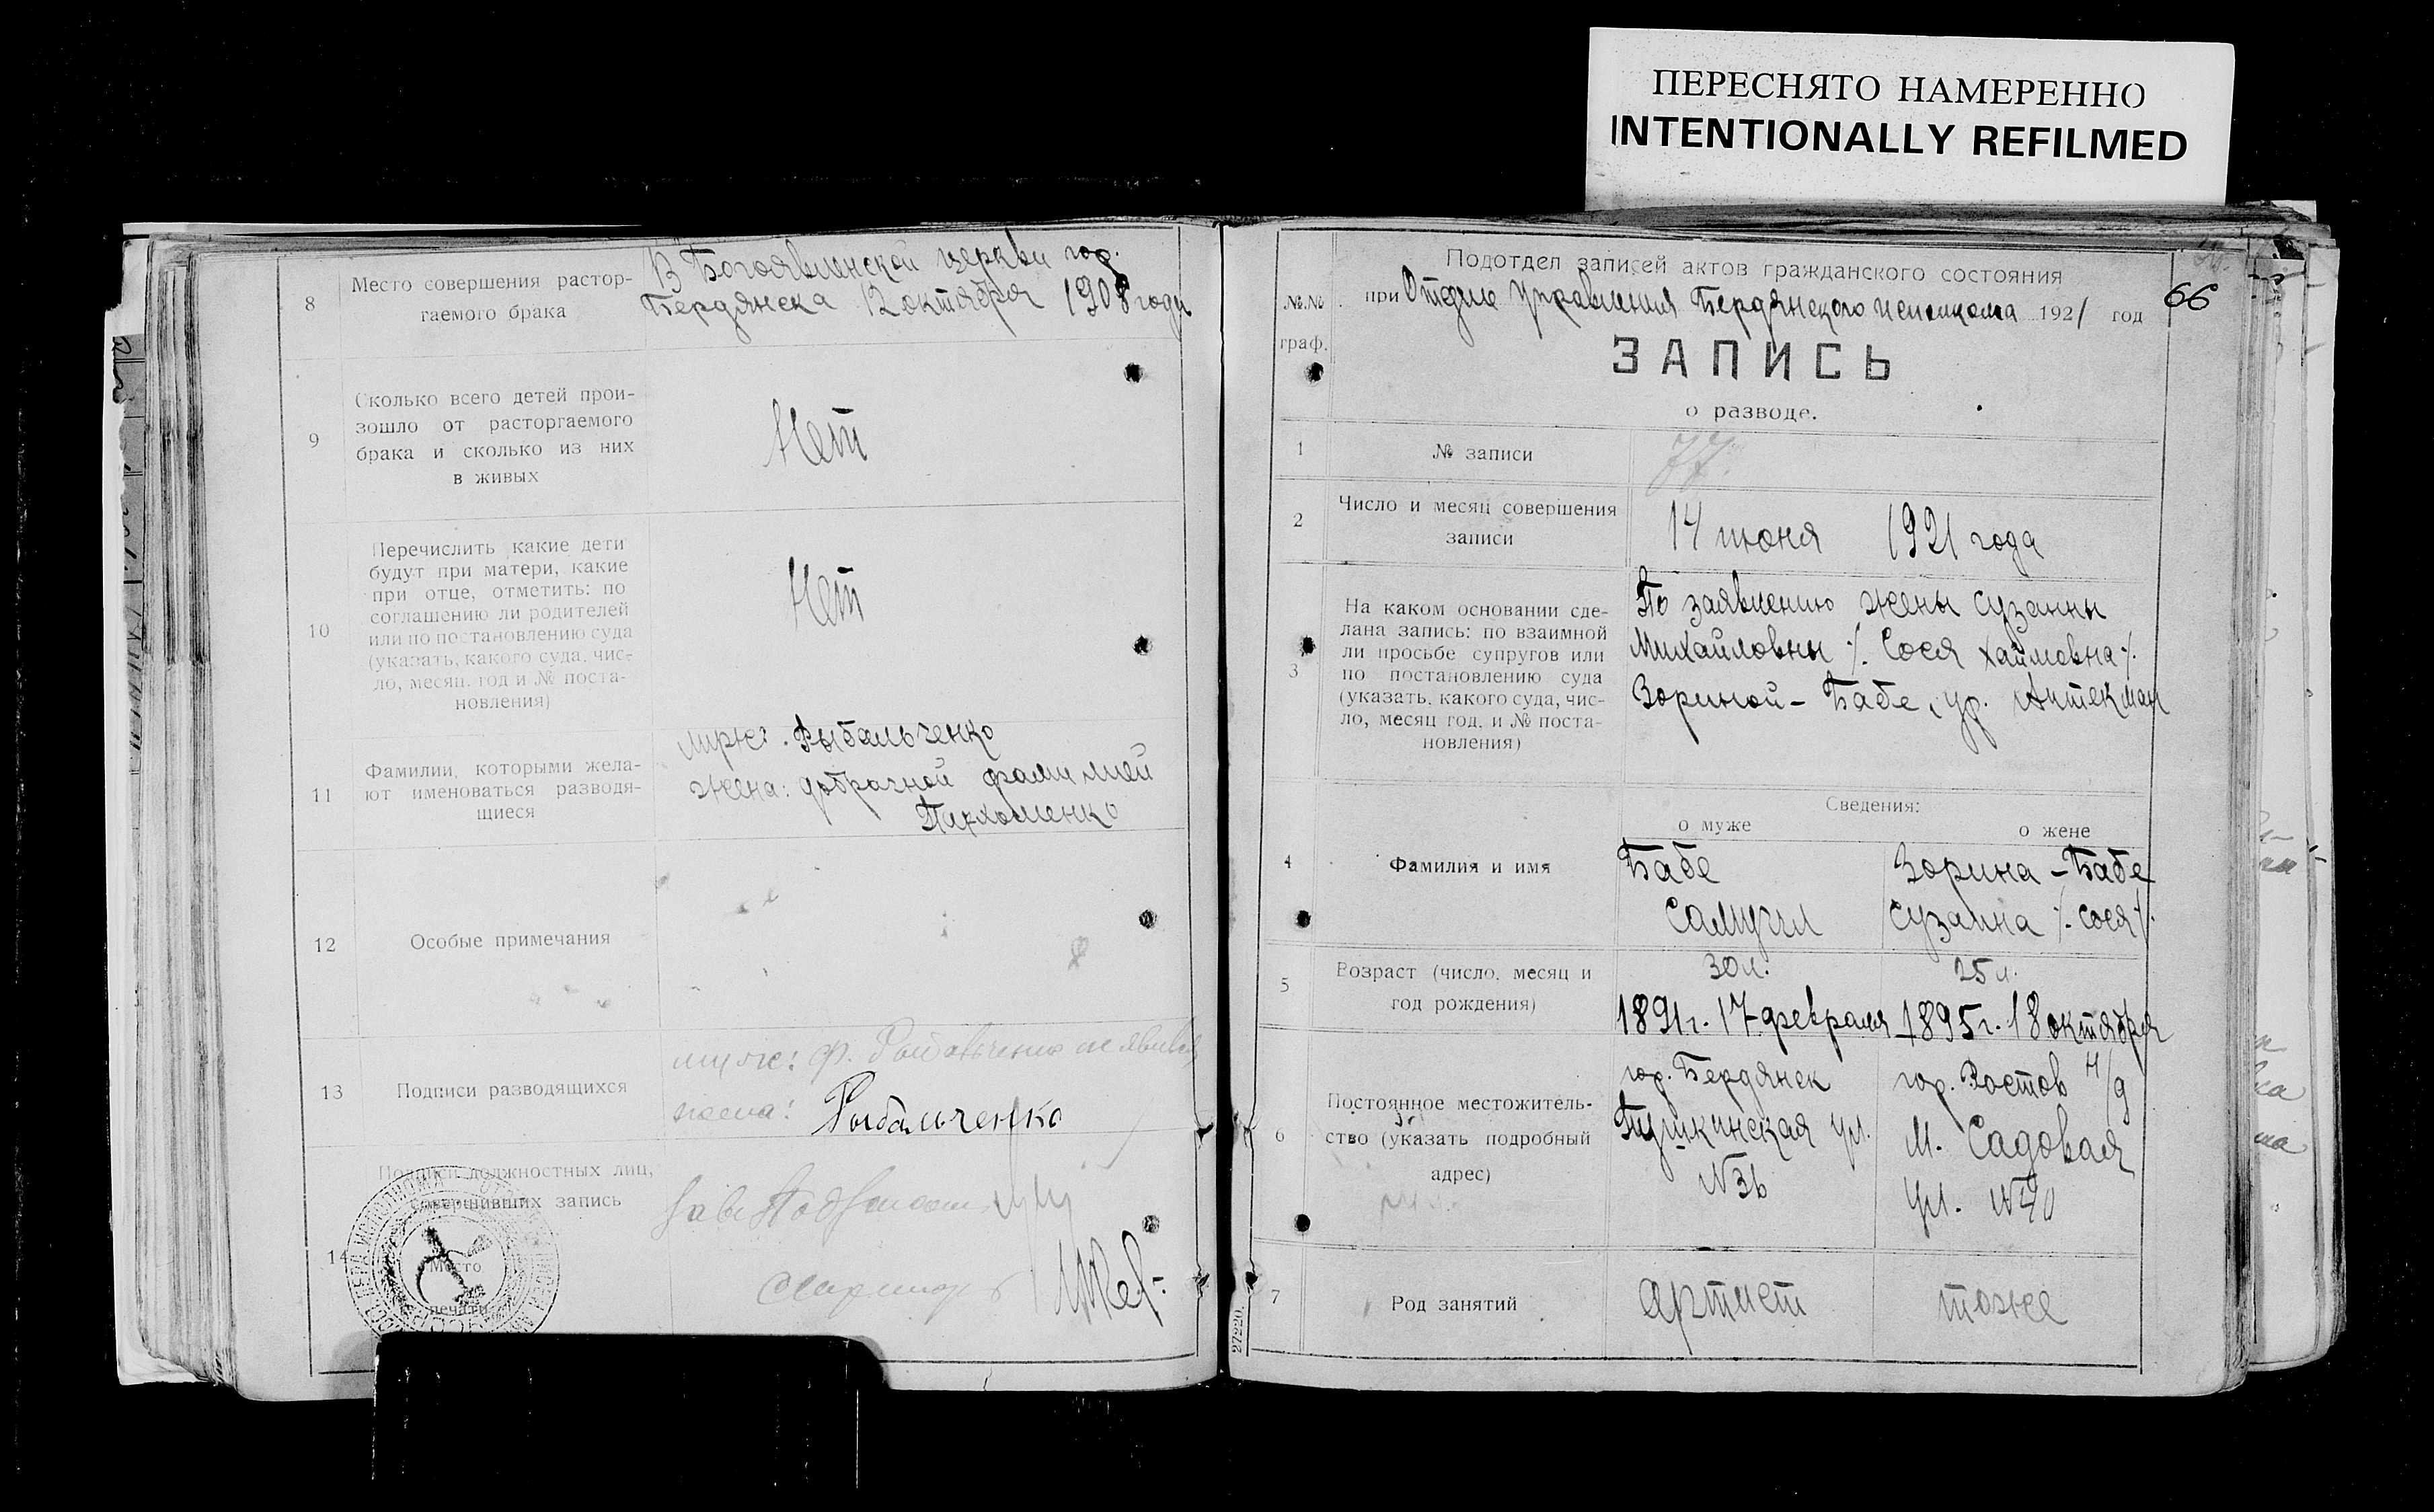 ПЕРЕСНЯТО НАМЕРЕННО
INTENTIONALLY REFILMED
8
Место совершения растор-
гаемого брака
В Богоявленской церкви гор.
Бердянска 12 октября 1908 года
9
Сколько всего детей прои-
зошло от расторгаемого
брака и сколько из них
в живых
Нет
10
Перечислить какие дети
будут при матери, какие
при отце, отметить: по
соглашению ли родителей
или по постановлению суда
(указать, какого суда, чис-
ло, месяц, год и № поста-
новления)
Нет
11
Фамилии, которыми жела-
ют именоваться разводя-
щиеся
Рыбальченко
жена: добрачной фамилией
Пархоменко
12
Особые примечания
13
Подписи разводящихся
муж: Ф. Рыбальченко не явился
жена: Рыбальченко
14
Подписи должностных лиц,
совершивших запись
Место
печати
Подотдел записей актов гражданского состояния
№№
граф.
при Отделе Управления Бердянского исполкома 1921 год
66
ЗАПИСЬ
о разводе.
1
№ записи
77.
2
Число и месяц совершения
записи
14 июня 1921 года
3
На каком основании сде-
лана запись: по взаимной
ли просьбе супругов или
по постановлению суда
(указать, какого суда, чис-
ло, месяц год, и № поста-
новления)
По заявлению жены Сузанны
Михайловны ⁒ Сося Хаймовна ⁒
Зориной - Бабе, ур. Аптекман
Сведения:
о муже
о жене
4
Фамилия и имя
Бабе
Самуил
Зорина - Бабе
Сузанна ⁒ Сося ⁒
5
Возраст (число, месяц и
год рождения)
30 л.
1891 г. 17 февраля
25 л.
1895 г. 18 октября
6
Постоянное местожитель-
ство (указать подробный
адрес)
гор. Бердянск
Пушкинская ул.
№36
гор. Ростов н/д
М. Садовая
ул. №40
7
Род занятий
артист
тоже
27220.